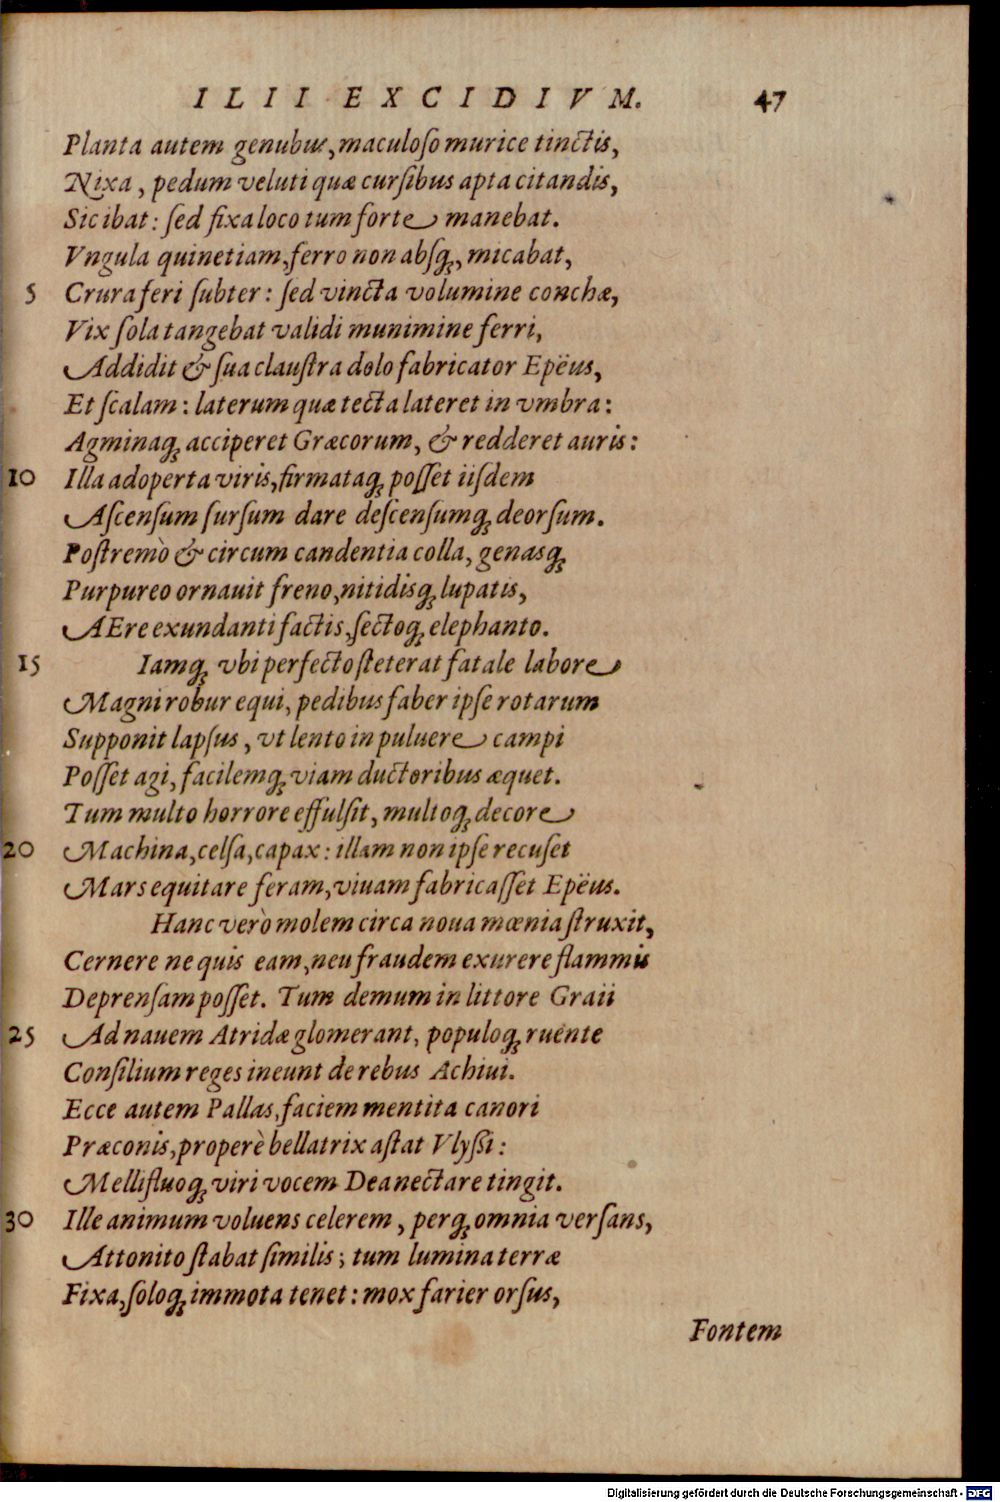 ILII EXCIDIVM. 47
Planta autem genubus, maculoſo murice tinctis,
Nixa, pedum veluti quæ curſibus apta citandis,
Sic ibat: ſed fixa loco tum forte manebat.
Vngula quinetiam, ferro non abſq;, micabat,
5 Crura feri ſubter: ſed vincta volumine conchæ,
Vix ſola tangebat validi munimine ferri,
Addidit & ſua clauſtra dolo fabricator Epëus,
Et ſcalam: laterum quæ tecta lateret in vmbra:
Agminaq; acciperet Græcorum, & redderet auris:
10 Illa adoperta viris, firmataq; poſſet iiſdem
Aſcenſum ſurſum dare deſcenſumq; deorſum.
Poſtremò & circum candentia colla, genasq;
Purpureo ornauit freno, nitidisq; lupatis,
AEre exundanti factis, ſectoq; elephanto.
15 Iamq; vbi perfecto ſteterat fatale labore
Magni robur equi, pedibus faber ipſe rotarum
Supponit lapſus, vt lento in puluere campi
Poſſet agi, facilemq; viam ductoribus æquet.
Tum multo horrore effulſit, multoq; decore
20 Machina, celſa, capax: illam non ipſe recuſet
Mars equitare feram, viuam fabricaſſet Epëus.
Hanc verò molem circa noua mœnia ſtruxit,
Cernere ne quis eam, neu fraudem exurere flammis
Deprenſam poſſet. Tum demum in littore Graii
25 Ad nauem Atridæ glomerant, populoq; ruente
Conſilium reges ineunt de rebus Achiui.
Ecce autem Pallas, faciem mentita canori
Præconis, properè bellatrix aſtat Vlyſſi:
Mellifluoq; viri vocem Dea nectare tingit.
30 Ille animum voluens celerem, perq; omnia verſans,
Attonito ſtabat ſimilis; tum lumina terræ
Fixa, ſoloq; immota tenet: mox farier orſus,
Fontem
Digitalisierung gefördert durch die Deutsche Forschungsgemeinschaft - DFG